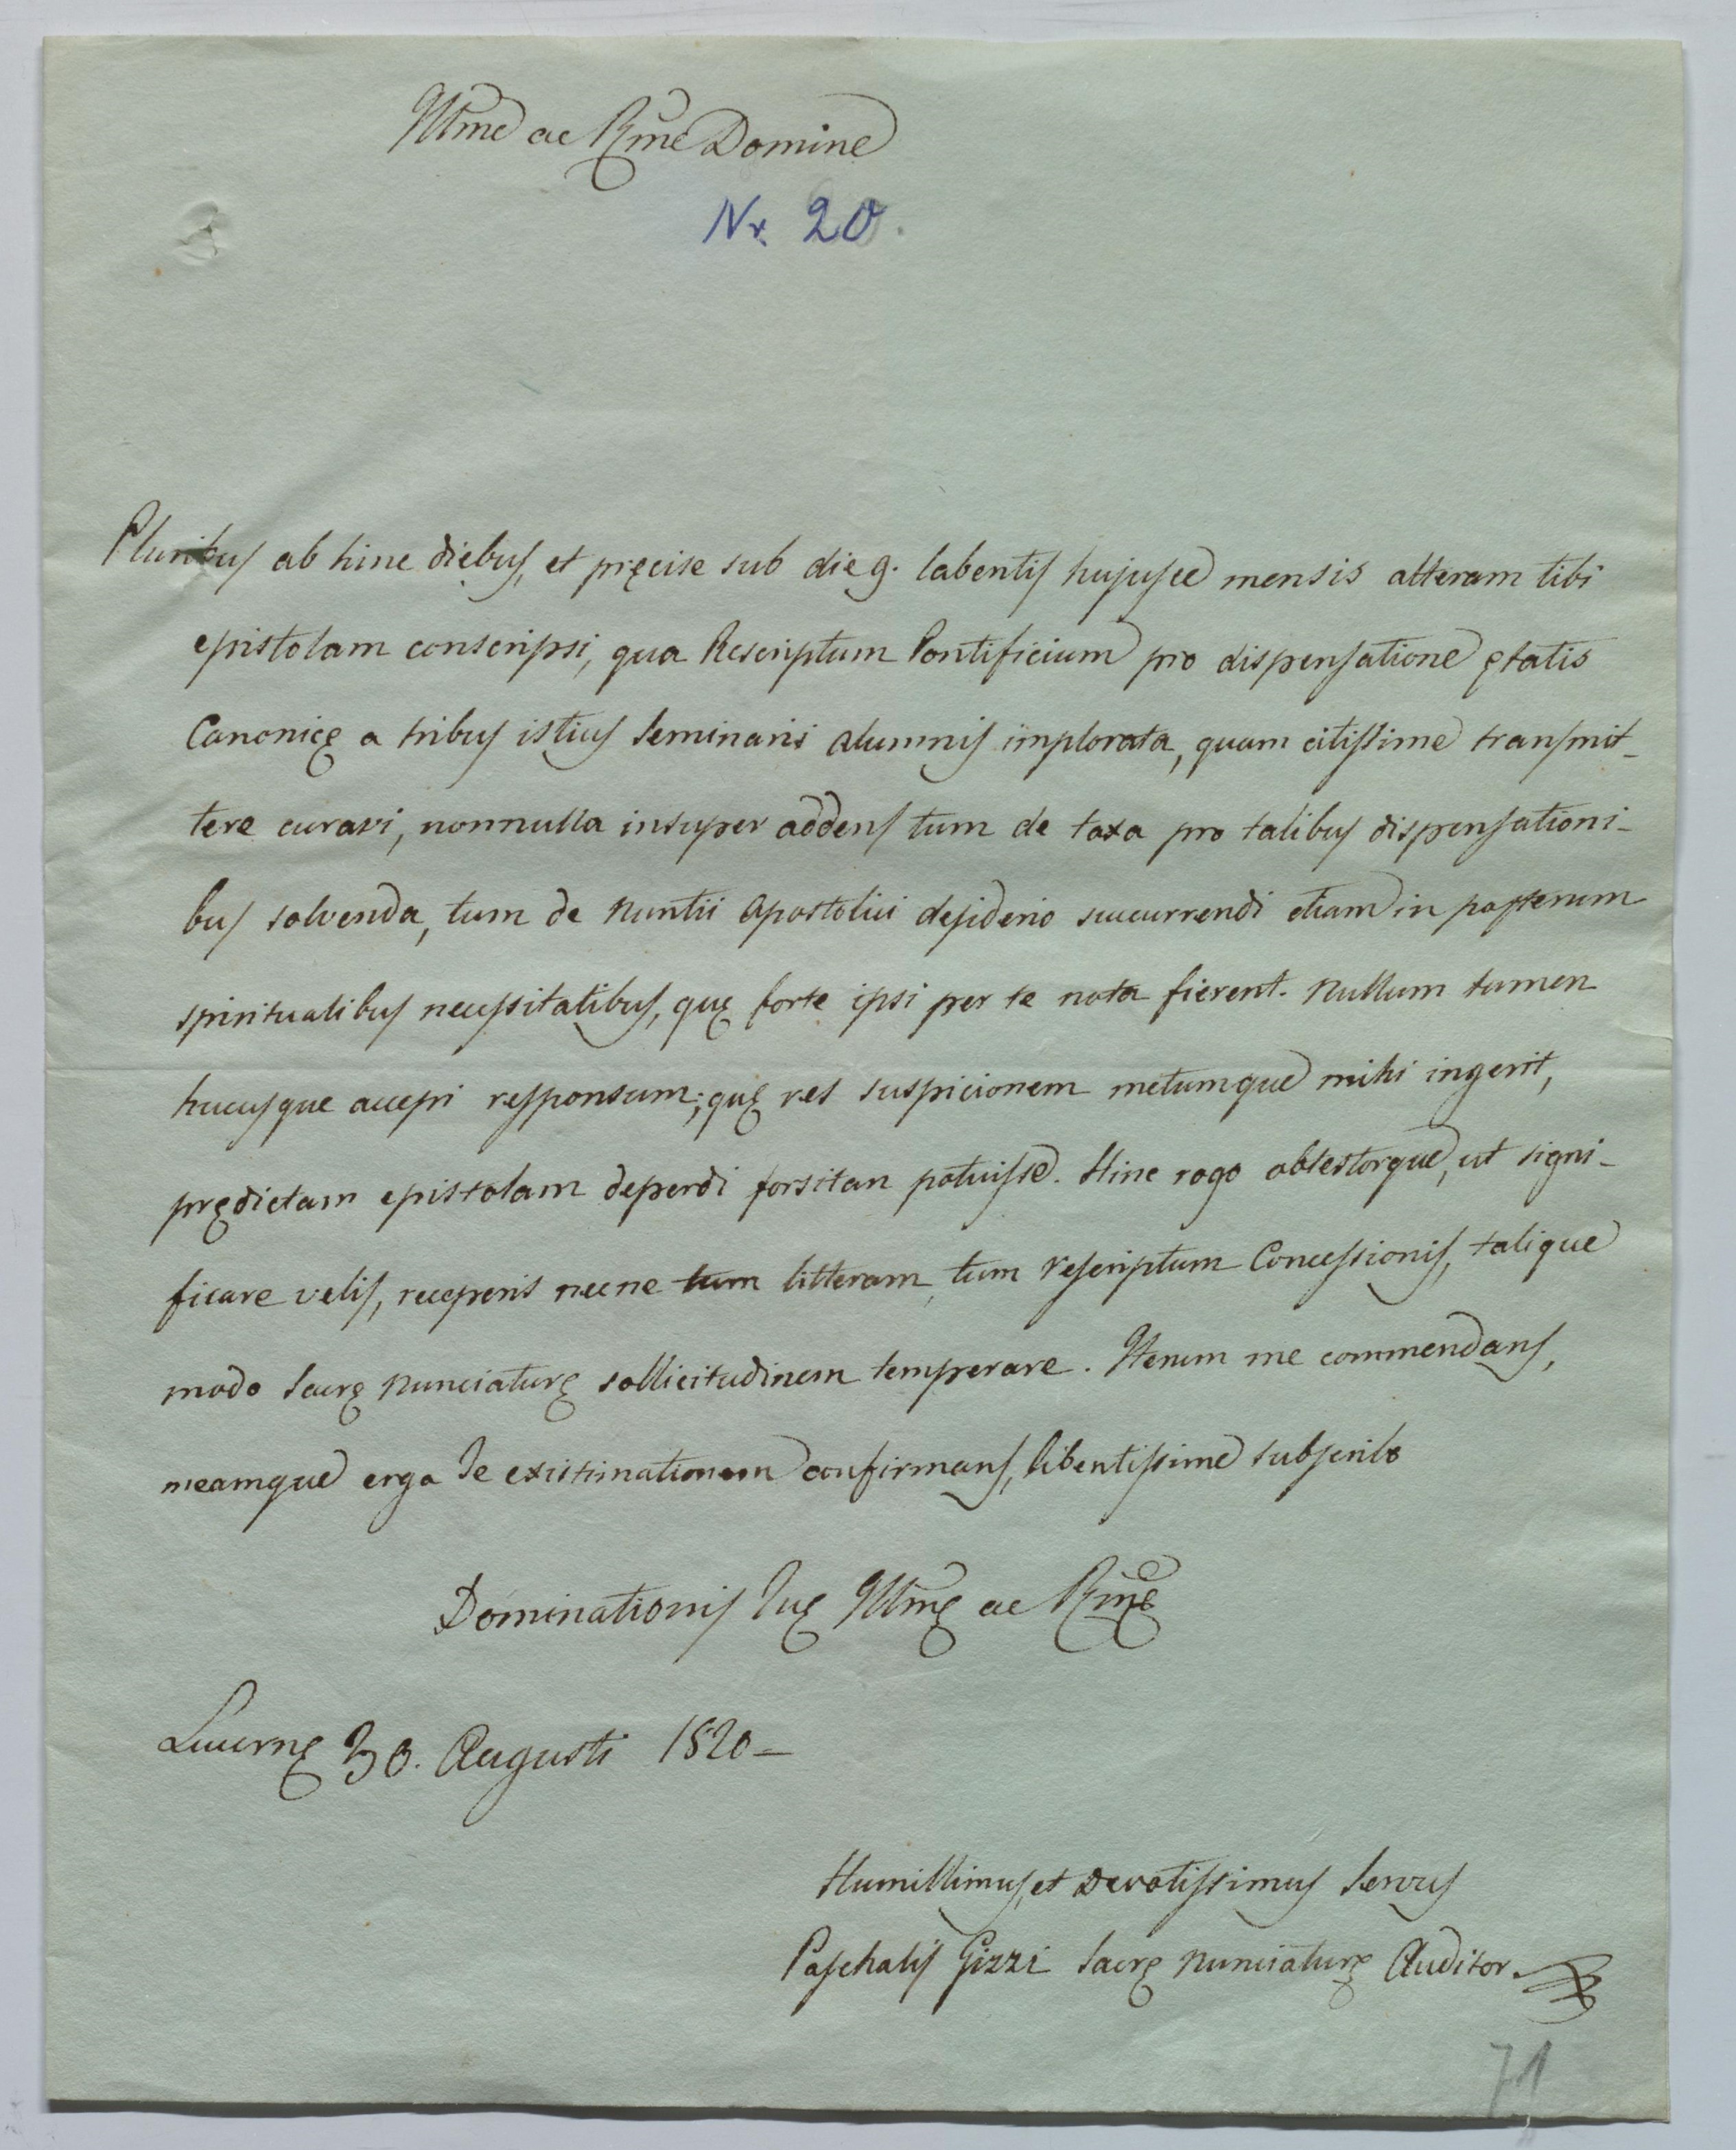 Illme ac Rme Domine
Nr. 20.
Pluribus ab hinc diebus, et pręcise sub die 9. labentis hujusce mensis alteram tibi
epistolam conscripsi, qua Rescriptum Pontificium pro dispensatione ętatis
Canonicę a tribus istius Seminarii alumnis implorata, quam citissime transmit_
tere curavi, nonnulla insuper addens tum de taxa pro talibus dispensationi_
bus solvenda, tum de Nuntii Apostolici desiderio succurrendi etiam in posterum
spiritualibus necessitatibus, quę forte ipsi per te nota fierent. Nullum tamen
hucusque accepi responsum; quę res suspicionem metumque mihi ingerit,
prędictam epistolam deperdi forsitan potuisse. Hinc rogo obtestorque, ut signi_
ficare velis, receperis necne tum litteram, tum rescriptum Concessionis, talique
modo Sacrę Nunciaturę sollicitudinem temperare. Iterum me commendans,
meamque erga Te existimationem confirmans, libentissime subscribo
Dominationis Tuę Illmę ac Rmę
Lucernę 30. Augusti 1820_
Humillimus, et Devotissimus Servus
Paschalis Gizzi Sacrę Nunciaturę Auditor
71